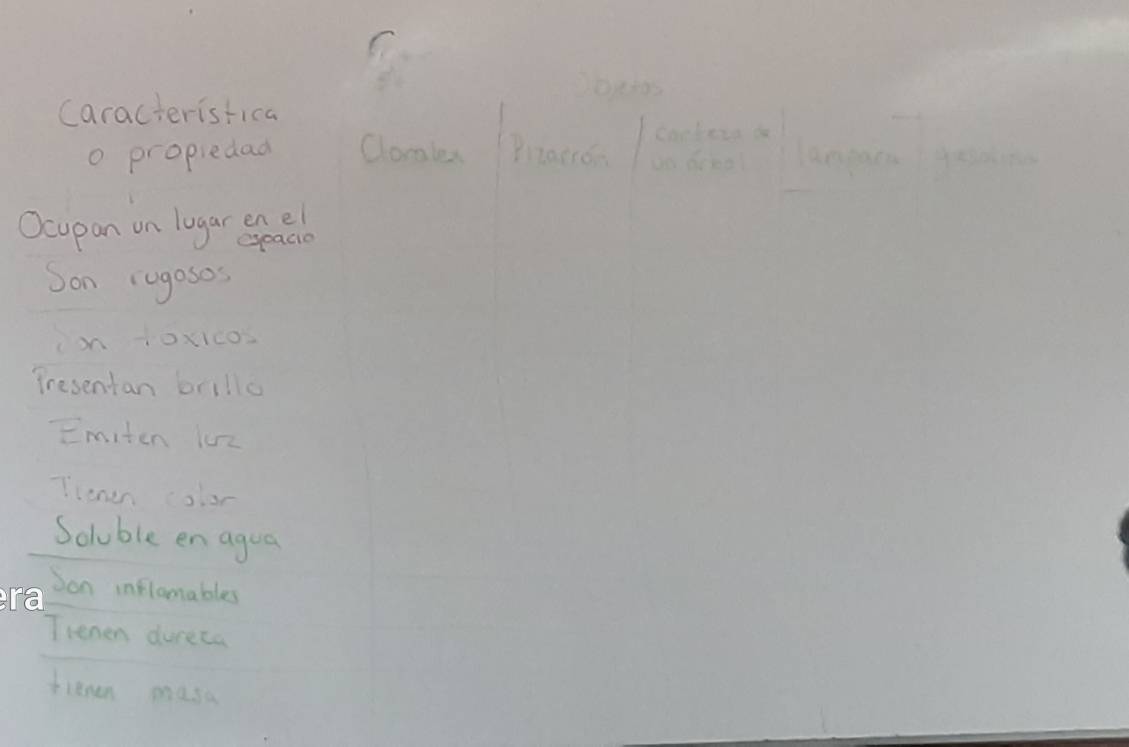 Objetos
Característica
o propiedad
Cloralex
Pizarrón
corteza de
un árbol
lampara
gasolina
Ocupan un lugar en el
espacio
Son rugosos
Son tóxicos
Presentan brillo
Emiten luz
Tienen color
Soluble en agua
Son inflamables
Tienen dureza
tienen masa
era